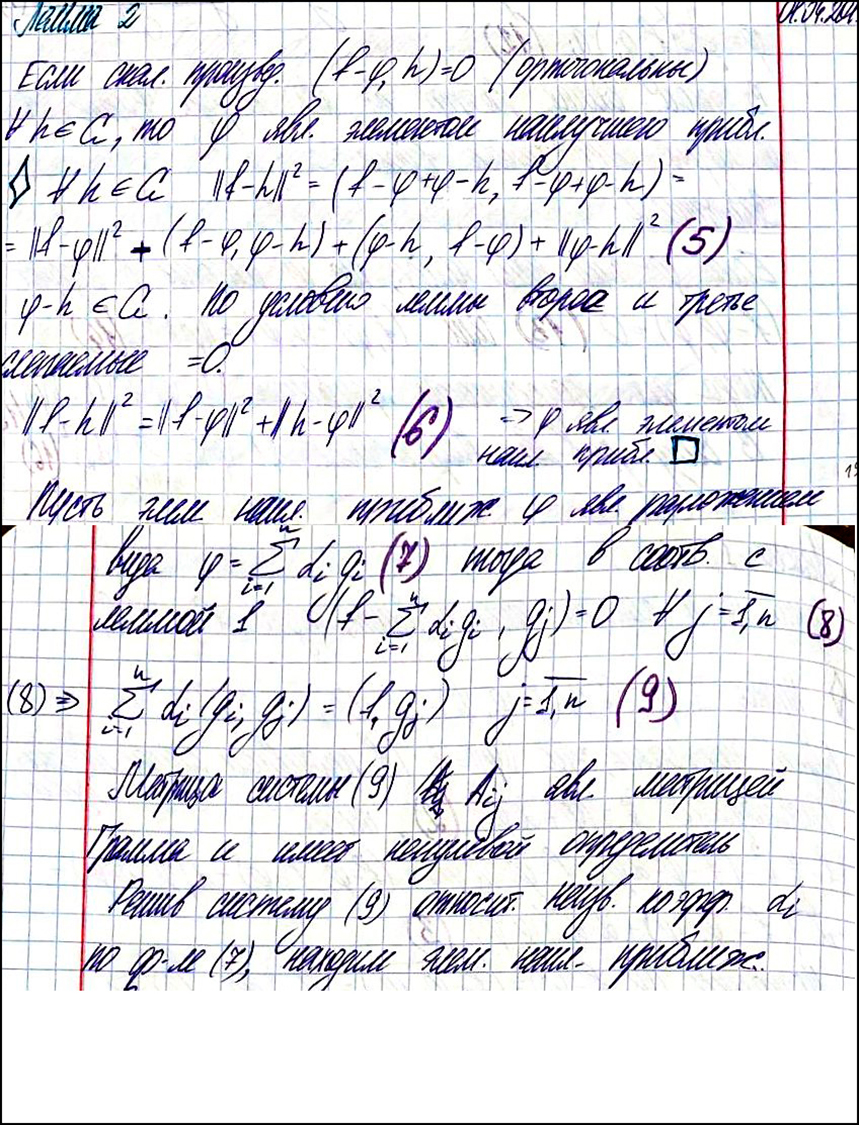 Лемма 2
Если скал. произвед. (f-φ, h)=0 (ортогональны)
∀ h ∈ G, то φ явл. элементом наилучшего прибл.
◊ ∀ h ∈ G ‖f-h‖² = (f-φ+φ-h, f-φ+φ-h) =
= ‖f-φ‖² + (f-φ, φ-h) + (φ-h, f-φ) + ‖φ-h‖² (5)
φ-h ∈ G. По условию леммы второе и третье
слагаемые =0.
‖f-h‖² = ‖f-φ‖² + ‖h-φ‖² (6) => φ явл. элементом
наил. прибл. □
Пусть элем наил. приближ. φ явл. разложением
вида φ = Σⁿᵢ₌₁ αᵢ gᵢ (7) тогда в соотв. с
леммой 1 (f - Σⁿᵢ₌₁ αᵢgᵢ, gⱼ) = 0 ∀ j = 1,n (8)
(8) => Σⁿᵢ₌₁ αᵢ (gᵢ, gⱼ) = (f, gⱼ) j = 1,n (9)
Матрица системы (9) Aᵢⱼ явл. матрицей
Грамма и имеет ненулевой определитель
Решив систему (9) относит. неизв. коэфф. αᵢ
по ф-ле (7), находим элем. наил. приближ.